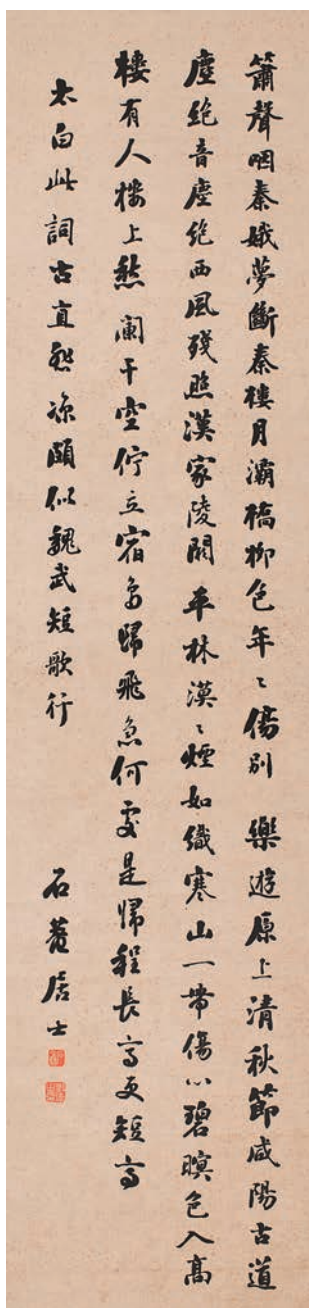 簫聲咽秦娥夢斷秦樓月灞橋柳色年〻傷別 樂遊原上清秋節咸陽古道
塵絕音塵絕西風殘照漢家陵闕 平林漠〻煙如織寒山一帶傷心碧暝色入高
樓有人樓上愁 闌干空佇立宿鳥歸飛急何處是歸程長亭更短亭
太白此詞古直悲涼頗似魏武短歌行
石菴居士